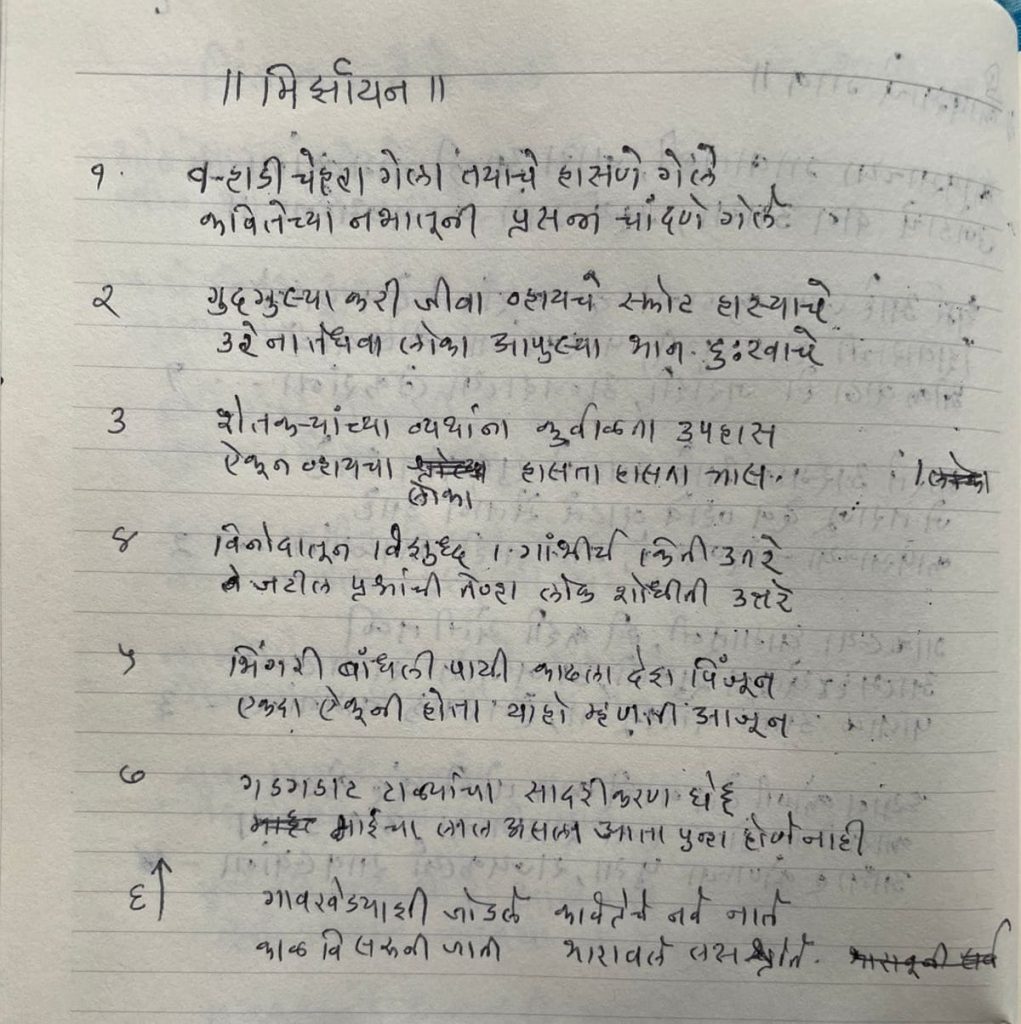 ॥ मिर्झायन ॥
१. वऱ्हाडी चेहरा गेला तयाचे हासणे गेले
कवितेच्या नभातूनी प्रसन्न चांदणे गेले
२ गुदगुल्या करी जीवा व्हायचे स्फोट हास्याचे
उरेना तेधवा लोका आपुल्या भान दुःखाचे
३ शेतकऱ्यांच्या व्यथांना कुर्वाळता उपहास
ऐकून व्हायचा लोका हासता हासता भास.
४ विनोदातून विशुध्द गांभीर्य किती उतरे
जटील प्रश्नांची तेव्हा लोक शोधीती उत्तरे
५ भिंगरी बांधली पायी काढला देश पिंजून
एकदा ऐकूनी होता यांहो म्हणती आजून
७ गडगडाट टाळ्यांचा सादरीकरण घेई
माईचा लाल असला आता पुन्हा होणे नाही
६ गावखेड्याशी जोडले कवितेचे नवे नाते
काळ विसरूनी जाती भारावले श्रोते.